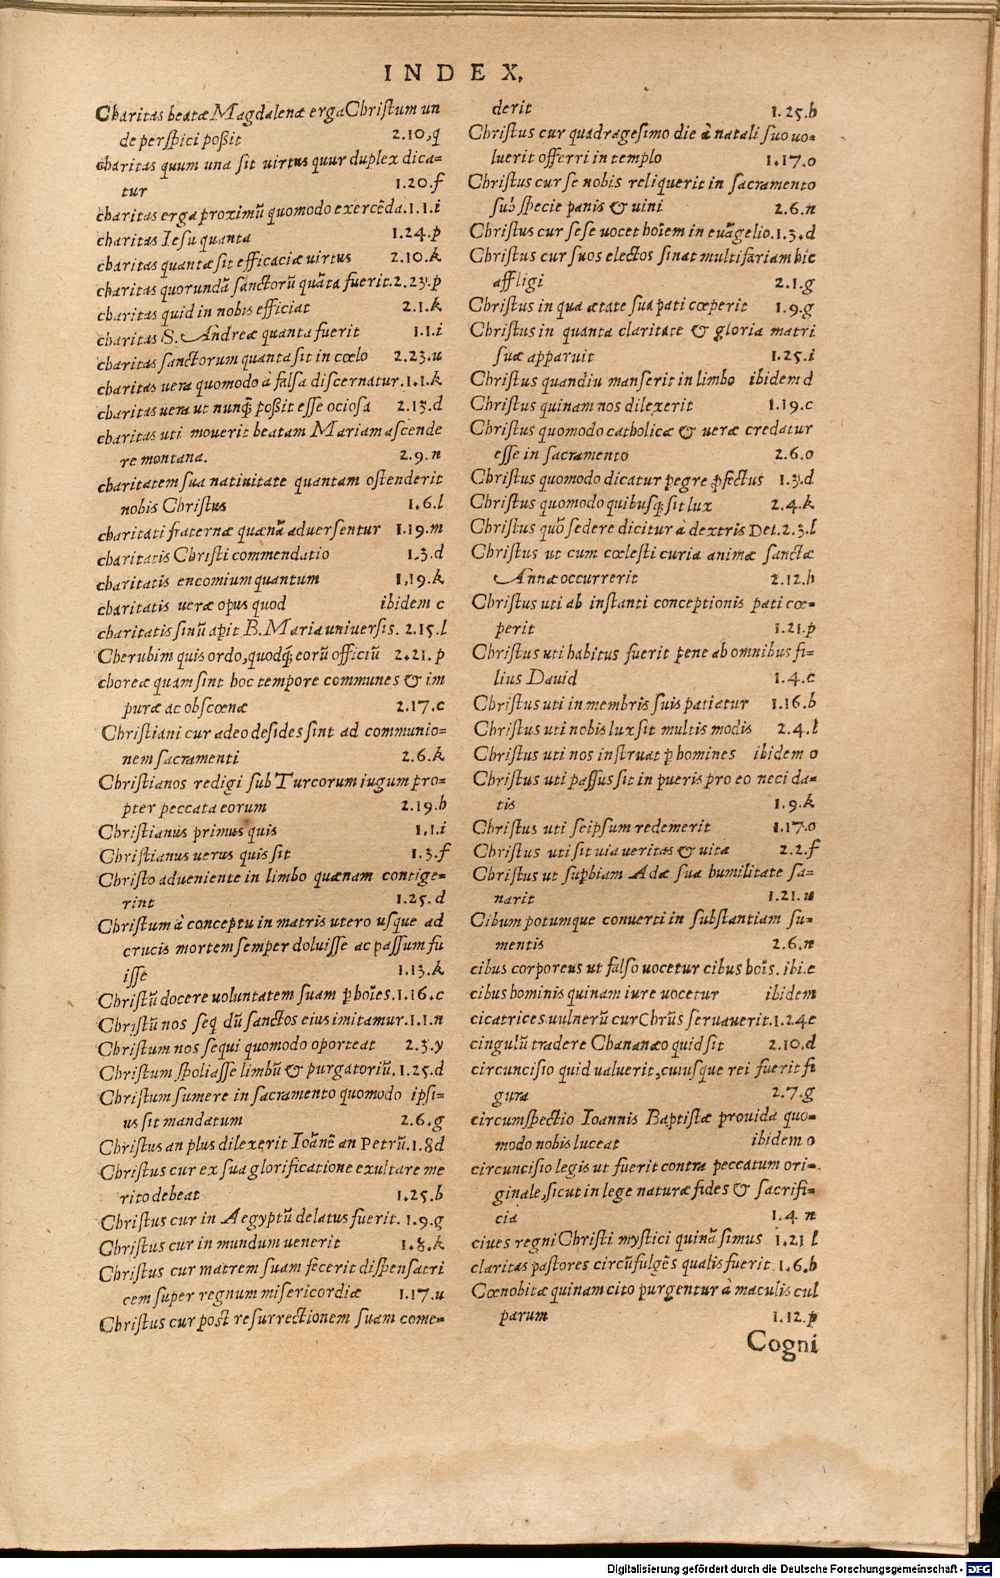 INDEX,
Charitas beatæ Magdalenæ erga Christum un
de perspici poßit 2.10,q
charitas quum una sit virtus quur duplex dica=
tur 1.20.f
charitas erga proximū quomodo exercēda.1.1.i
charitas Iesu quanta 1.24.p
charitas quantæ sit efficaciæ virtus 2.10.k
charitas quorundā sanctorū quāta fuerit.2.23.p
charitas quid in nobis efficiat 2.1.k
charitas S. Andreæ quanta fuerit 1.1.i
charitas sanctorum quanta sit in cœlo 2.23.u
charitas uera quomodo à falsa discernatur.1.1.k
charitas uera ut nunq̄ poßit esse ociosa 2.13.d
charitas uti mouerit beatam Mariam ascende
re montana. 2.9.n
charitatem sua natiuitate quantam ostenderit
nobis Christus 1.6.l
charitati fraternæ quænā aduersentur 1.19.m
charitatis Christi commendatio 1.3.d
charitatis encomium quantum 1,19.k
charitatis ueræ opus quod ibidem c
charitatis sinū apit B. Maria uniuersis. 2.15.l
Cherubim quis ordo, quodq́; eorū officiū 2.21.p
choreæ quam sint hoc tempore communes & im
puræ ac obscœnæ 2.17.c
Christiani cur adeo desides sint ad communio=
nem sacramenti 2.6.k
Christianos redigi sub Turcorum iugum pro=
pter peccata eorum 2.19.b
Christianus primus quis 1.1.i
Christianus uerus quis sit 1.3.f
Christo adueniente in limbo quænam contige=
rint 1.25.d
Christum à conceptu in matris utero usque ad
crucis mortem semper doluisse ac passum fu
isse 1.13.k
Christū docere uoluntatem suam p hoīes.1.16.c
Christū nos seq̄ dū sanctos eius imitamur.1.1.n
Christum nos sequi quomodo oporteat 2.3.y
Christum spoliasse limbū & purgatoriū. 1.25.d
Christum sumere in sacramento quomodo ipsi=
us sit mandatum 2.6.g
Christus an plus dilexerit Ioānē an Petrū.1.8d
Christus cur ex sua glorificatione exultare me
rito debeat 1.25.b
Christus cur in Aegyptū delatus fuerit. 1.9.g
Christus cur in mundum uenerit 1.8.k
Christus cur matrem suam fecerit dispensatri
cem super regnum misericordiæ 1.17.u
Christus cur post resurrectionem suam come=
derit 1.25.b
Christus cur quadragesimo die à natali suo uo=
luerit offerri in templo 1.17.o
Christus cur se nobis reliquerit in sacramento
sub specie panis & uini 2.6.n
Christus cur sese uocet hoīem in euāgelio.1.3.d
Christus cur suos electos sinat multifariam hic
affligi 2.1.g
Christus in qua ætate sua pati cœperit 1.9.g
Christus in quanta claritate & gloria matri
suæ apparuit 1.25.i
Christus quandiu manserit in limbo ibidem d
Christus quinam nos dilexerit 1.19.c
Christus quomodo catholicæ & ueræ credatur
esse in sacramento 2.6.o
Christus quomodo dicatur pegre pfectus 1.3.d
Christus quomodo quibusq; sit lux 2.4.k
Christus quō sedere dicitur à dextris Dei.2.3.l
Christus ut cum cœlesti curia animæ sanctæ
Annæ occurrerit 2.12.b
Christus uti ab instanti conceptionis pati cœ=
perit 1.21.p
Christus uti habitus fuerit pene ab omnibus fi=
lius Dauid 1.4.c
Christus uti in membris suis patiatur 1.16.b
Christus uti nobis lux sit multis modis 2.4.l
Christus uti nos instruat p homines ibidem o
Christus uti passus sit in pueris pro eo neci da=
tis 1.9.k
Christus uti seipsum redemerit 1.17.o
Christus uti sit uia ueritas & uita 2.2.f
Christus ut supbiam Adæ sua humilitate sa=
narit 1.21.u
Cibum potumque conuerti in substantiam su=
mentis 2.6.n
cibus corporeus ut falso uocetur cibus hoīs. ibi.e
cibus hominis quinam iure uocetur ibidem
cicatrices uulnerū cur Chrūs seruauerit.1.24e
cingulū tradere Chananæo quid sit 2.10.d
circuncisio quid ualuerit, cuiusque rei fuerit fi
gura 2.7.g
circumspectio Ioannis Baptistæ prouida quo=
modo nobis luceat ibidem o
circuncisio legis ut fuerit contra peccatum ori=
ginale, sicut in lege naturæ fides & sacrifi=
cia 1.4 n
ciues regni Christi mystici quinā simus 1.21 l
claritas pastores circūfulgēs qualis fuerit. 1.6.b
Cœnobitæ quinam cito purgentur à maculis cul
parum 1.12.p
Cogni
Digitalisierung gefördert durch die Deutsche Forschungsgemeinschaft - DFG